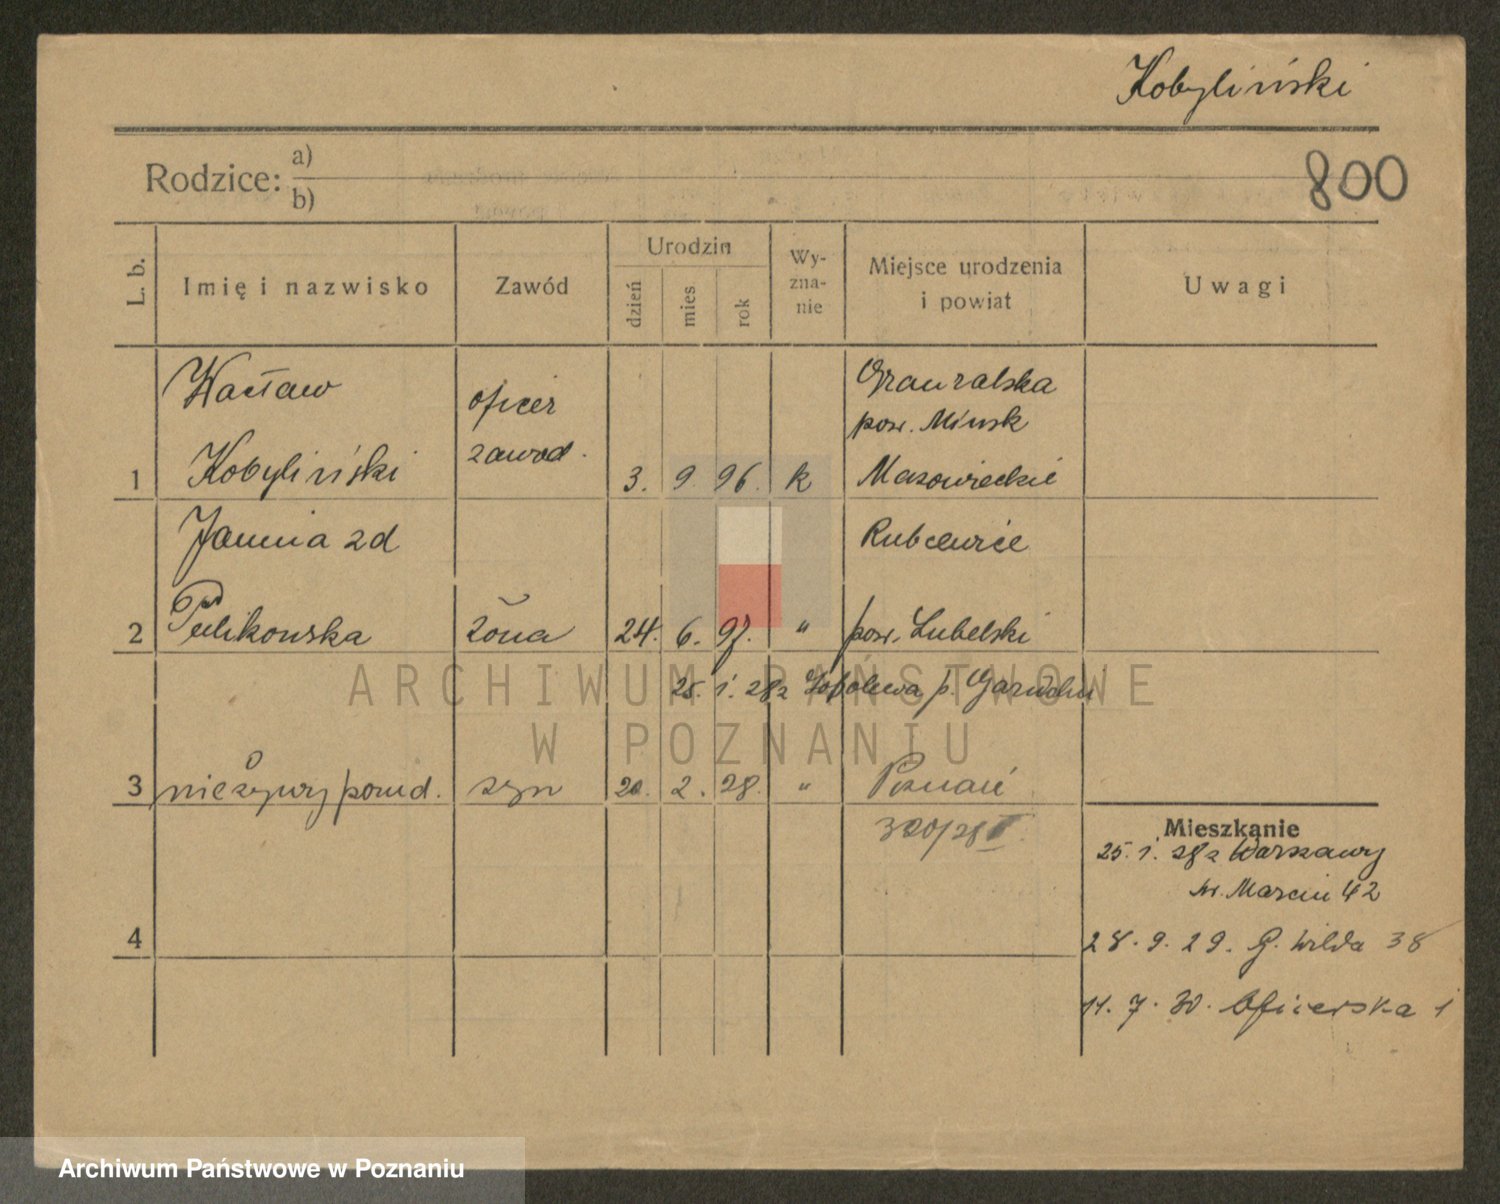 Kobyliński
800
Rodzice: a)
b)
L. b.
Imię i nazwisko
Zawód
Urodzin
dzień
mies
rok
Wy-
zna-
nie
Miejsce urodzenia
i powiat
Uwagi
Wacław
Kobyliński
oficer
zawod.
1
3. 9. 96. k
pow. Mińsk
Mazowieckie
Janina zd
Pulikowska
2
żona
24. 6. 97. "
Rubcewice
pow. Lubelski
25. 1. 28 z Sobolewa p. Garwolin
3
nieżywy porod.
syn
20. 2. 28. "
Poznań
320/28 II
Mieszkanie
25. 1. 28 z Warszawy
św. Marcin 42
4
28. 9. 29. G. Wilda 38
11. 7. 30. Oficerska 1
ARCHIWUM PAŃSTWOWE
W POZNANIU
Archiwum Państwowe w Poznaniu